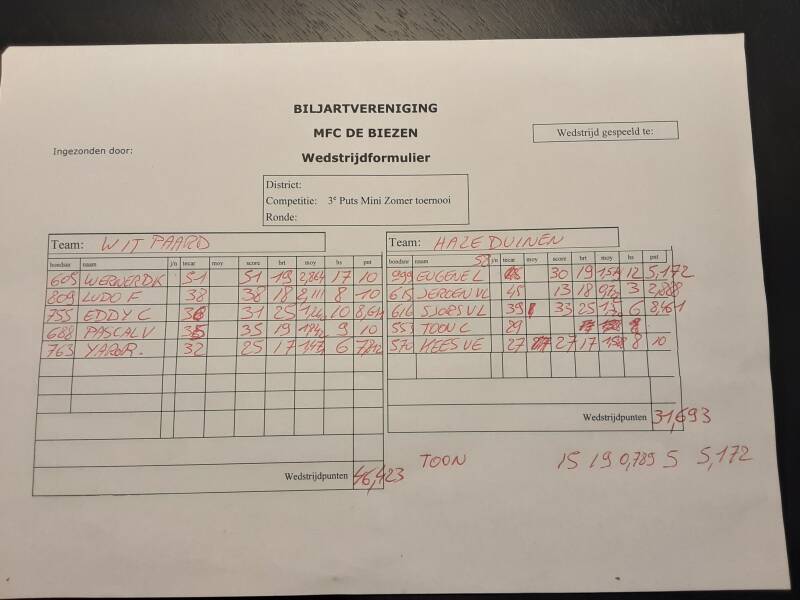 BILJARTVERENIGING
MFC DE BIEZEN
Wedstrijdformulier
Wedstrijd gespeeld te:
Ingezonden door:
District:
Competitie: 3e Puts Mini Zomer toernooi
Ronde:
Team: WIT PAARD
bondsnr naam j/n tecar moy score brt moy hs pnt
605 WERNER DK 51 51 19 2,864 17 10
809 LUDO F 38 38 18 2,111 8 10
755 EDDY C 31 25 10
688 PASCAL V 35 35 19 9 10
763 32 25 17 6
Wedstrijdpunten 46,423
Team: HAZEDUINEN
bondsnr naam j/n tecar moy score brt moy hs pnt
999 EUGENE L 58 30 19 12 5,172
615 JEROEN VL 45 13 18 3 2,888
616 SJORS VL 39 33 25 6 8,461
553 TOON C 29
570 KEES VE 27 27 17 8 10
Wedstrijdpunten 31,693
TOON 15 19 0,789 5 5,172